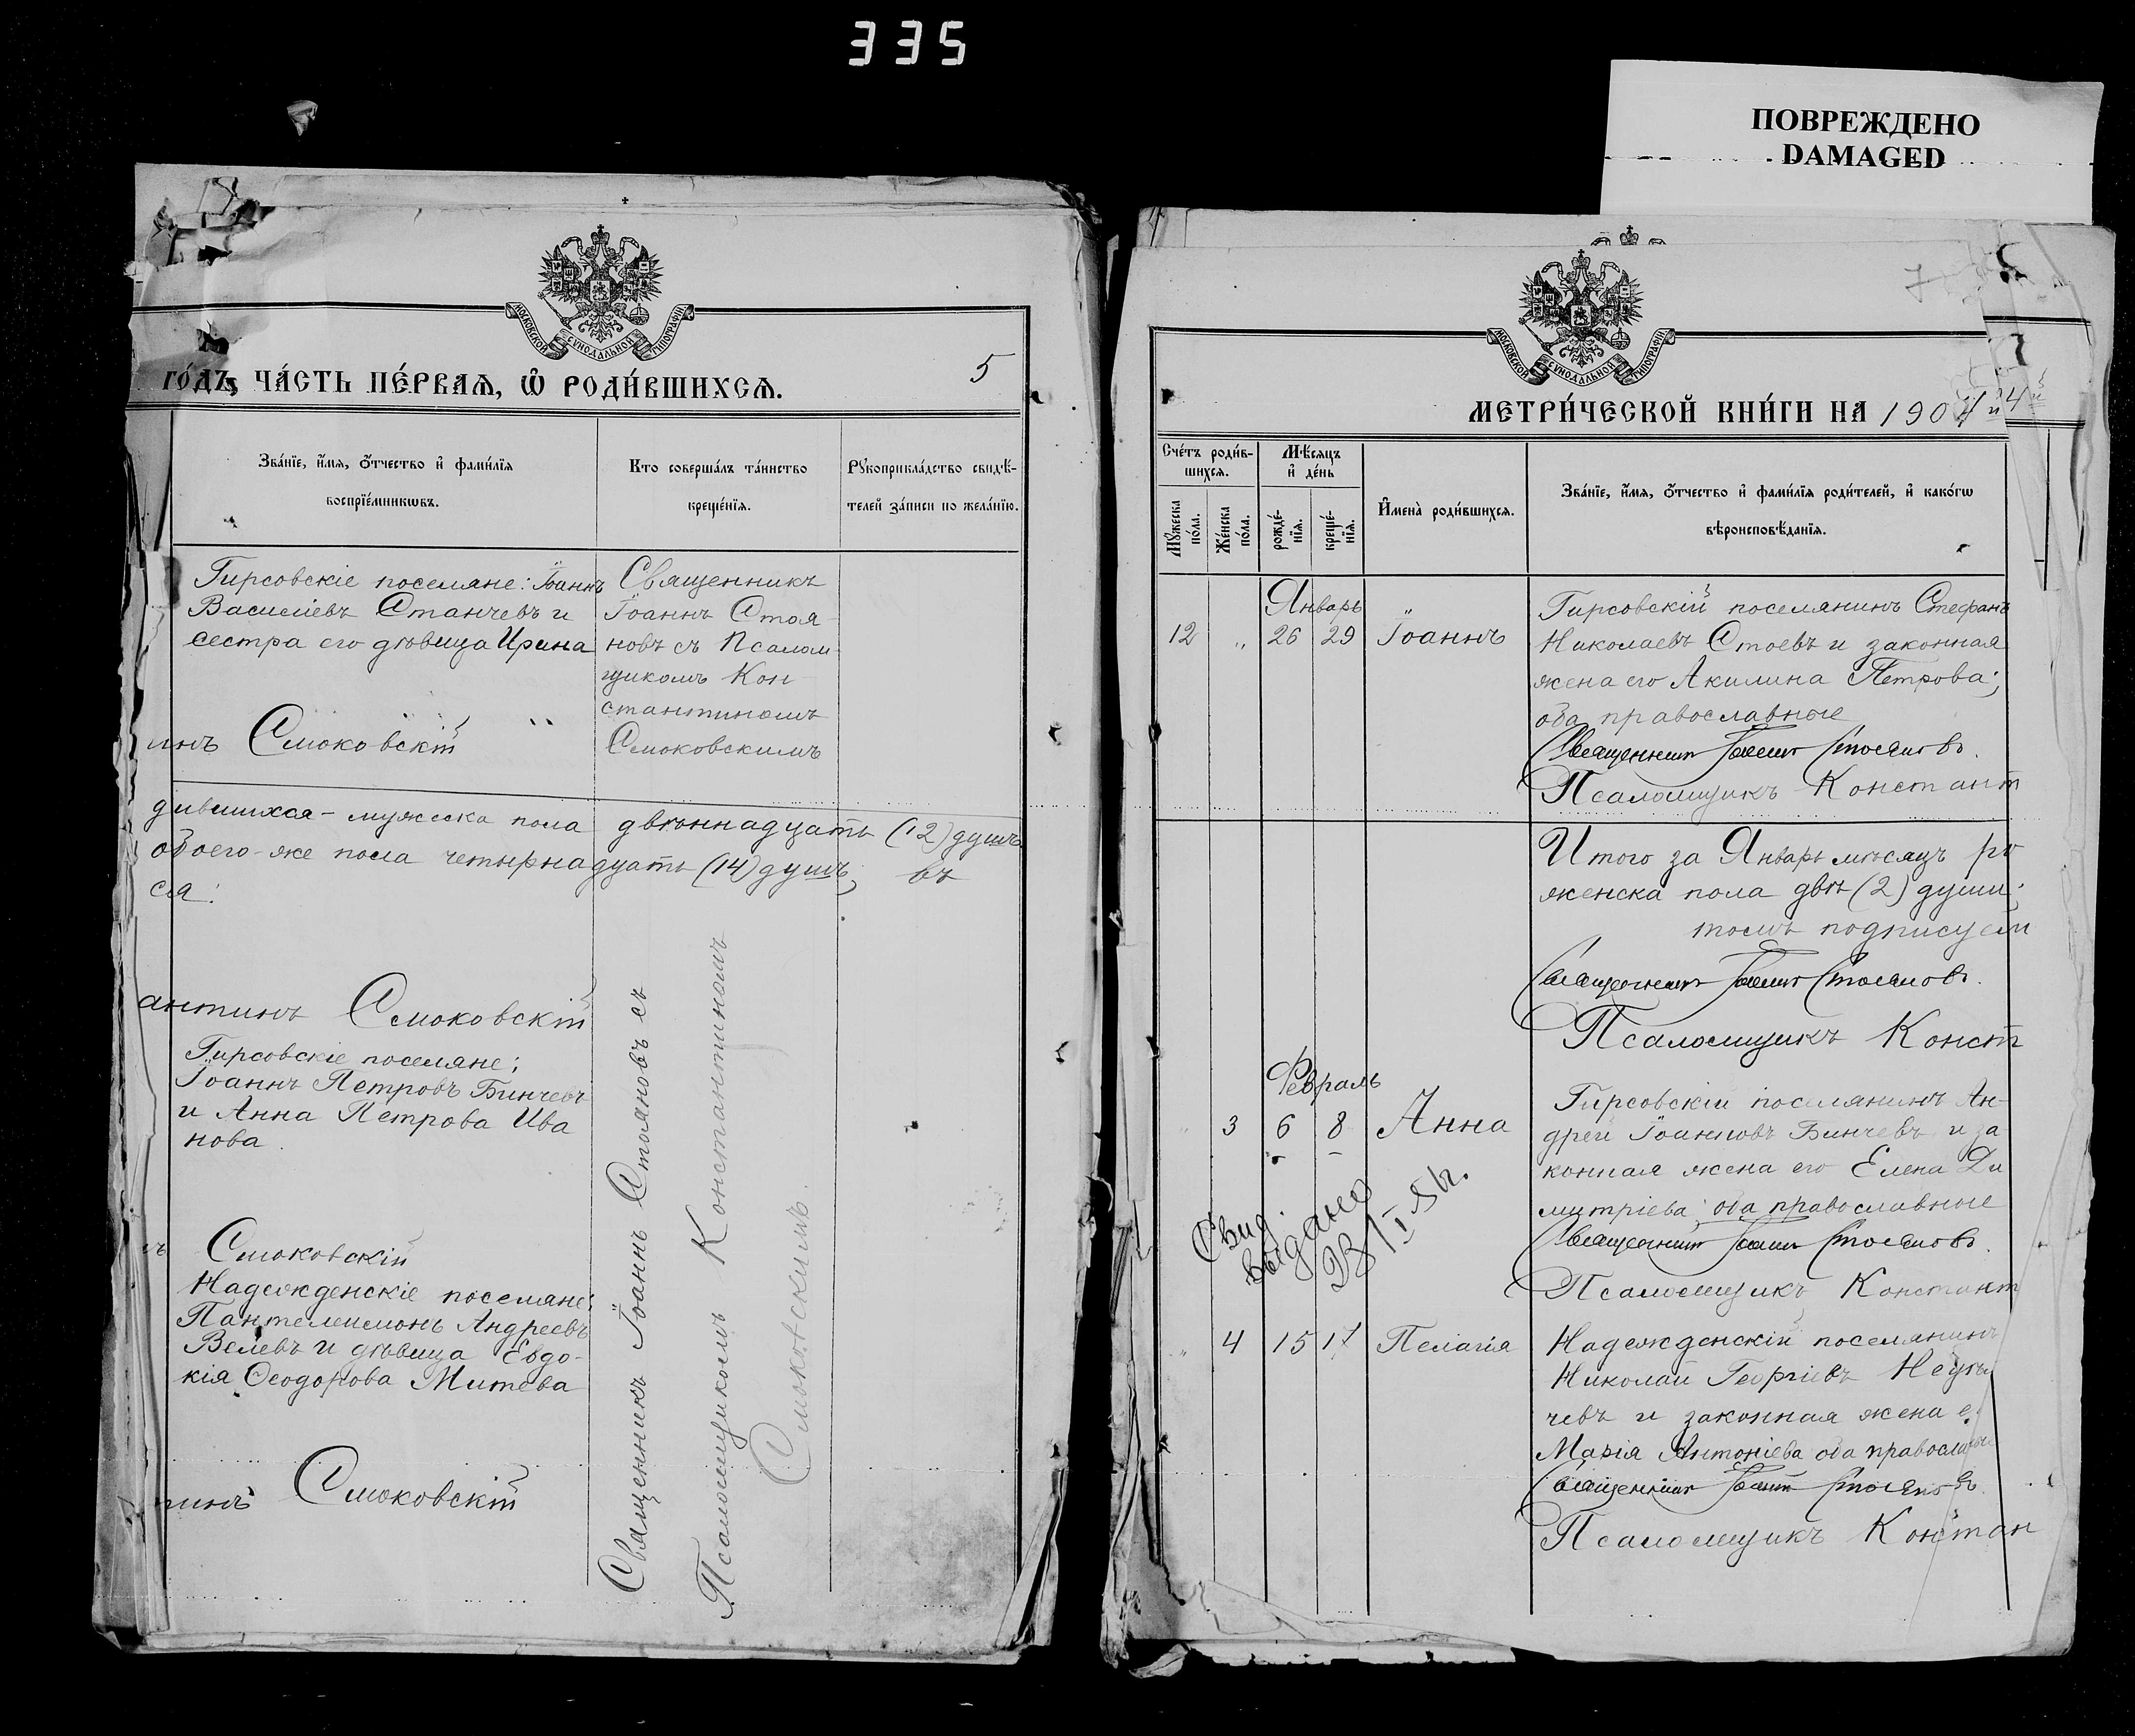 335
ПОВРЕЖДЕНО
DAMAGED
МОСКОВСКОЙ СѴНОДАЛЬНОЙ ТИПОГРАФІИ
го́дъ, ча́сть пе́рваѧ, ѡ҆ роди́вшихсѧ.
5
Зва́нїе, и҆́мѧ, ѻ҆́тчество и҆ фами́лїѧ
воспрїе́мникѡвъ.
Кто соверша́лъ та́инство
креще́нїѧ.
Рꙋкоприкла́дство свидѣ́-
телей за́писи по жела́нїю.
Гирсовскіе поселяне: Іоаннъ
Василіевъ Станчевъ и
сестра его дѣвица Ирина
инъ Смоковскій
Священникъ
Іоаннъ Стоя
новъ съ Псалом
щикомъ Кон
стантиномъ
Смоковскимъ
дившихся - мужеска пола двѣннадцать (12) душъ
обоего-же пола четырнадцать (14) душъ, въ
ся:
антинъ Смоковскій
Гирсовскіе поселяне;
Іоаннъ Петровъ Бинчевъ
и Анна Петрова Ива
нова.
ъ Смоковскій
Надежденскіе поселяне:
Пантелеимонъ Андреевъ
Велевъ и дѣвица Евдо-
кія Ѳеодорова Митева
тинъ Смоковскій
Священникъ Іоаннъ Стояновъ съ
Псаломщикомъ Константиномъ
Смоковскимъ.
МОСКОВСКОЙ СѴНОДАЛЬНОЙ ТИПОГРАФІИ
7
метри́ческой кни́ги на 1904й 4й
Сче́тъ роди́в-
шихсѧ.
Мꙋ́жеска
по́ла.
Же́нска
по́ла.
Мѣ́сѧцъ
и҆ де́нь
рожде́-
нїѧ.
креще́-
нїѧ.
И҆мена̀ роди́вшихсѧ.
Зва́нїе, и҆́мѧ, ѻ҆́тчество и҆ фами́лїѧ роди́телей, и҆ како́гѡ
вѣроисповѣ́данїѧ.
Январь
12 „ 26 29 Іоаннъ
Гирсовскій поселянинъ Стефанъ
Николаевъ Стоевъ и законная
жена его Акилина Петрова;
оба православные
Священникъ Іоаннъ Стояновъ.
Псаломщикъ Констант
Итого за Январь мѣсяцъ ро
женска пола двѣ (2) души;
томъ подписуем
Священникъ Іоаннъ Стояновъ.
Псаломщикъ Конст
Февраль
3 6 8 Анна
Гирсовскій поселянинъ Ан-
дрей Іоанновъ Бинчевъ и за
конная жена его Елена Ди
митріева; оба православные
Священникъ Іоаннъ Стояновъ.
Псаломщикъ Констант
Свид.
выдано
23/I
„ 4 15 17 Пелагія
Надежденскій поселянинъ
Николай Георгіевъ
чевъ и законная жена е
Марія Антоніева оба православные
Священникъ Іоаннъ Стояновъ.
Псаломщикъ Констан